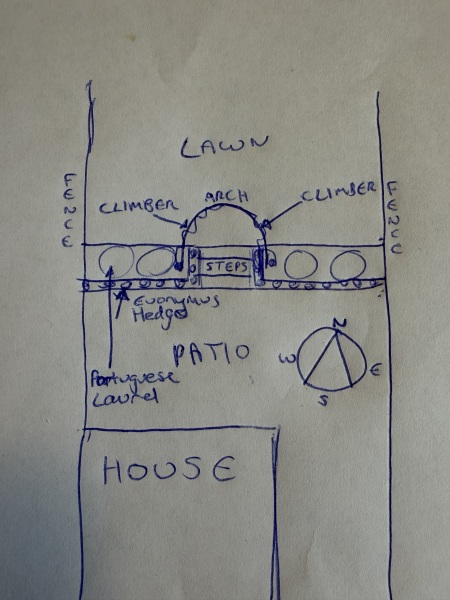 LAWN
FENCE
FENCE
CLIMBER
ARCH
CLIMBER
STEPS
Euonymus
Hedge
PATIO
N
W
E
S
Portuguese
Laurel
HOUSE